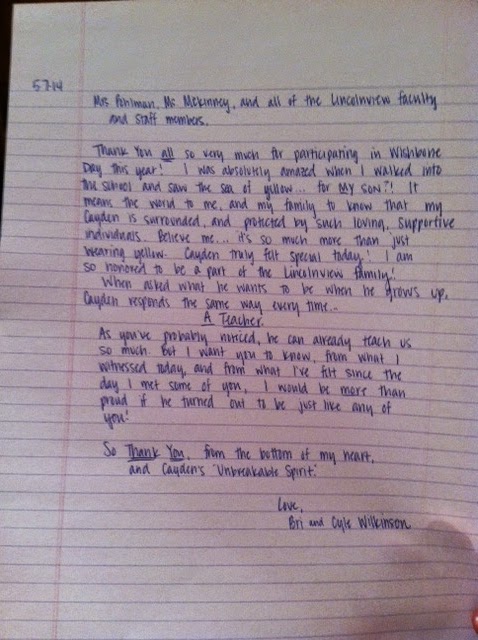 5-7-14
Mrs Pohlman, Ms. McKinney, and all of the Lincolnview faculty
and staff members,
Thank You all so very much for participating in Wishbone
Day this year! I was absolutely amazed when I walked into
the school and saw the sea of yellow... for MY SON?! It
means the world to me, and my family to know that my
Cayden is surrounded, and protected by such loving, supportive
individuals. Believe me... it's so much more than just
wearing yellow. Cayden truly felt special today! I am
so honored to be a part of the Lincolnview family!
When asked what he wants to be when he grows up,
Cayden responds the same way every time...
A Teacher.
As you've probably noticed, he can already teach us
so much. But I want you to know, from what I
witnessed today, and from what I've felt since the
day I met some of you, I would be more than
proud if he turned out to be just like any of
you!
So Thank You, from the bottom of my heart,
and Cayden's "Unbreakable Spirit."
Love,
Bri and Cyle Wilkinson